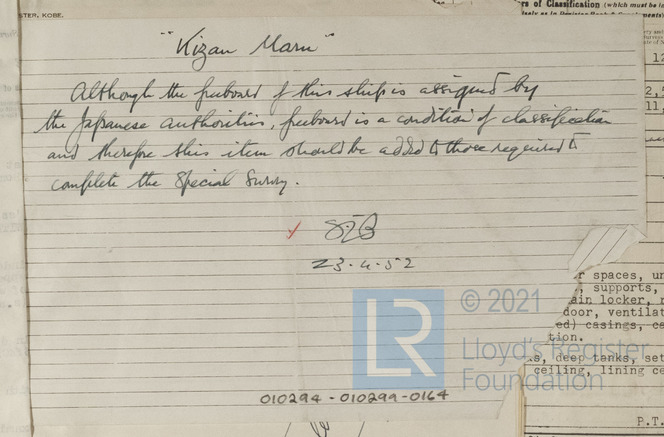 STER, KOBE.
rs of Classification (which must be
"Kizan Maru"
Although the freeboard of this ship is assigned by
the Japanese authorities, freeboard is a condition of classification
and therefore this item should be added to those required to
complete the Special Survey.
23.4.52
LR
© 2021
Lloyd's Register
Foundation
r spaces, un
, supports,
ain locker,
door, ventilat
ed) casings, ca
tion.
s, deep tanks, set
ceiling, lining ce
010294-010299-0164
P.T.